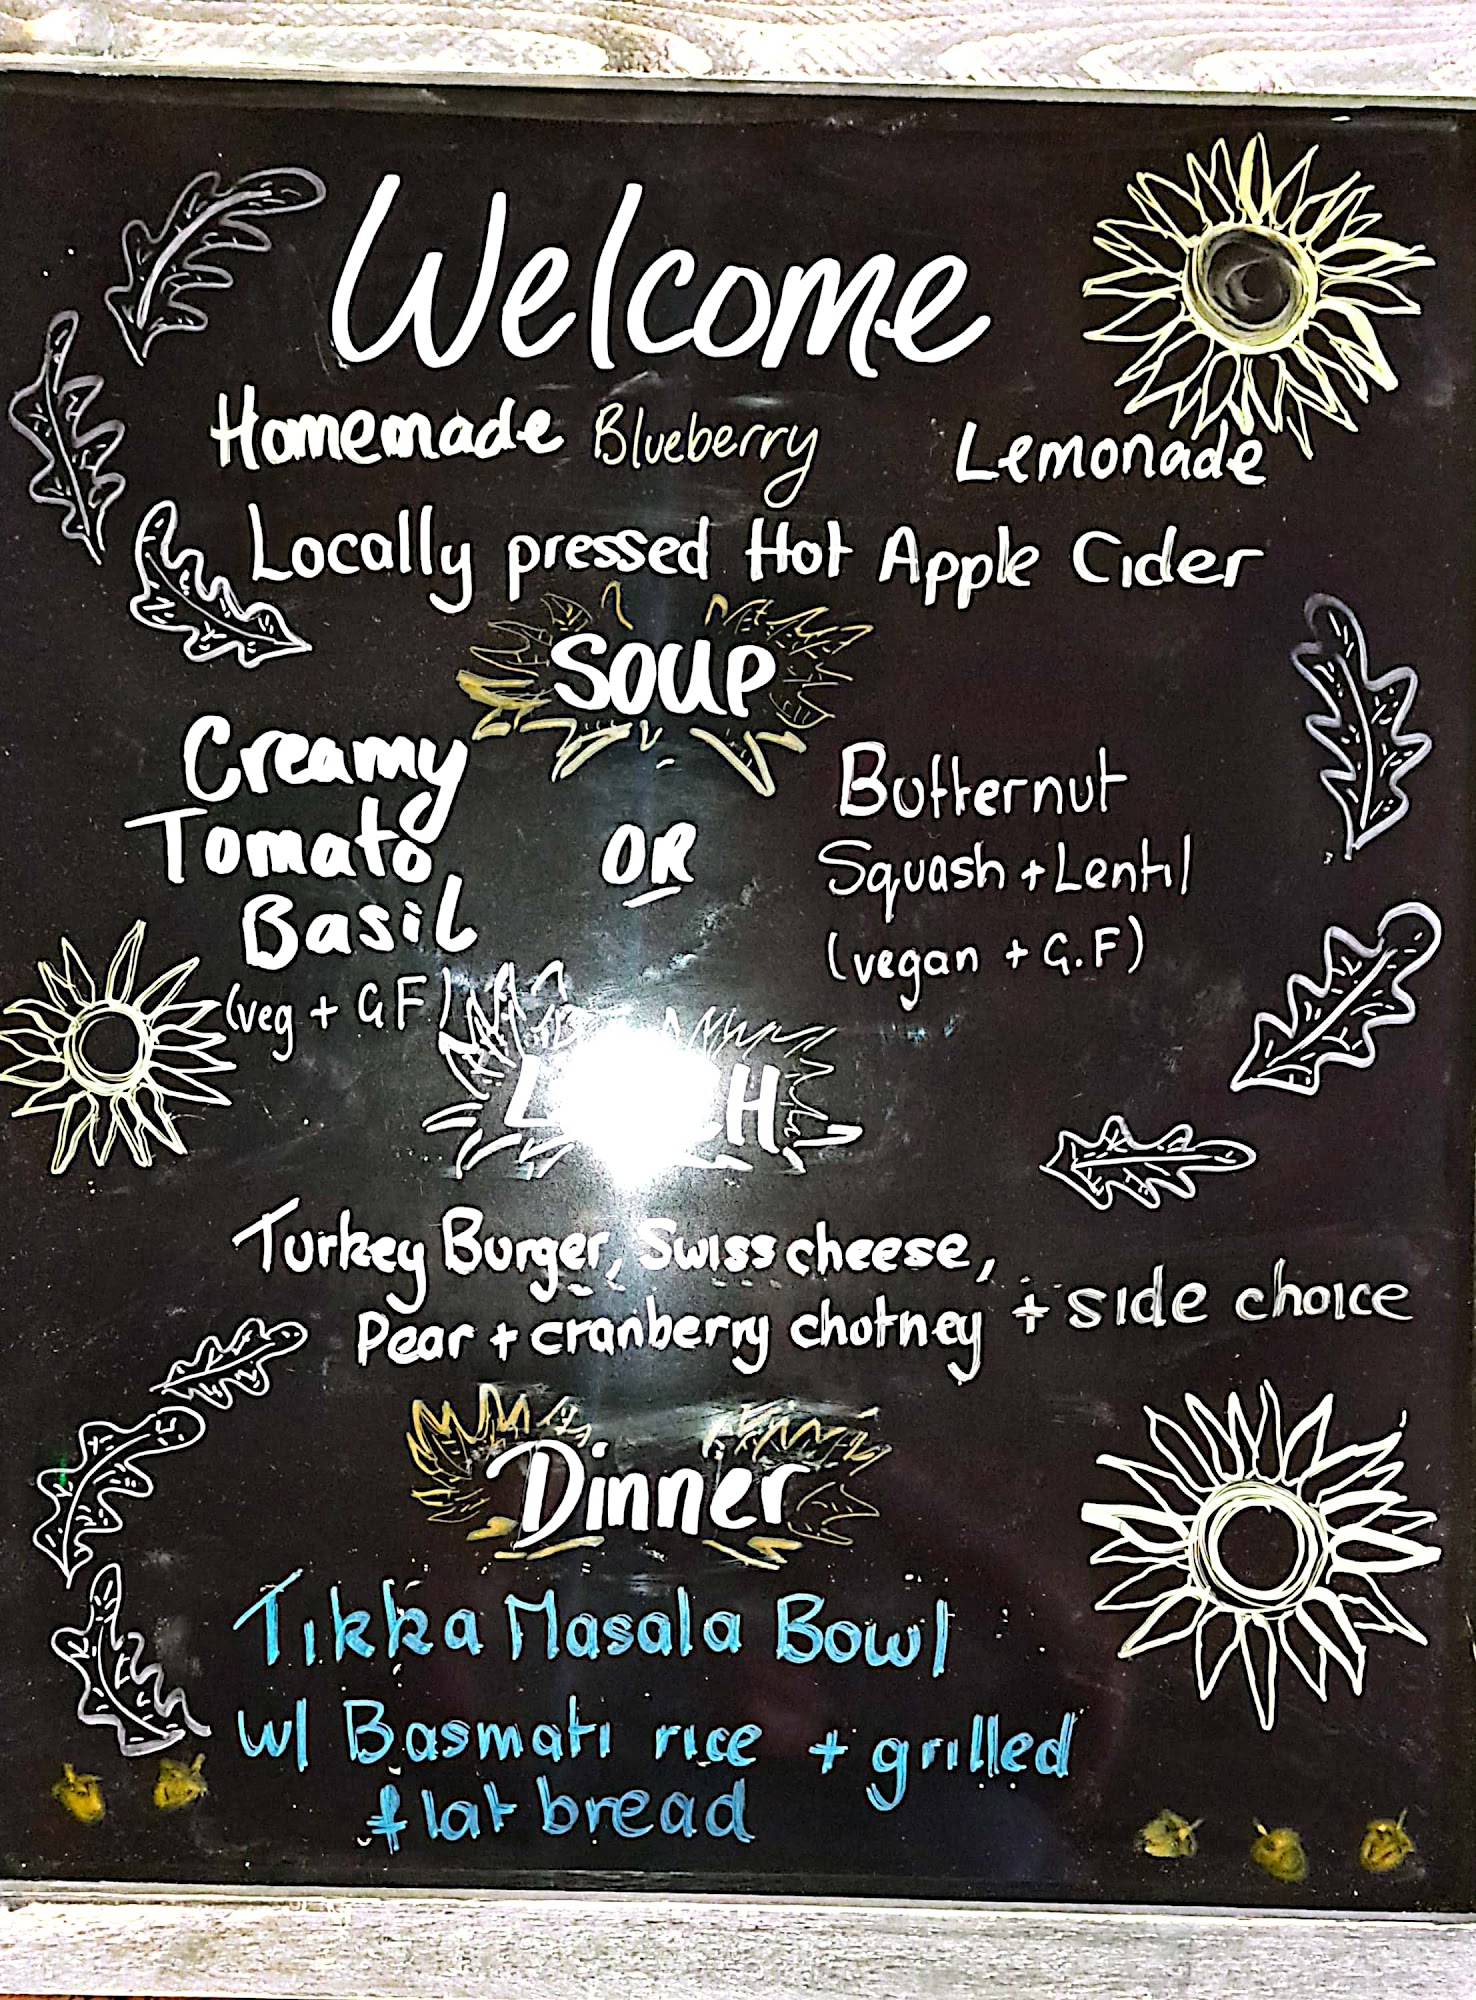 Welcome
Homemade Blueberry Lemonade
Locally pressed Hot Apple Cider
SOUP
Creamy
Tomato
Basil
(veg + G F)
OR
Butternut
Squash + Lentil
(vegan + G.F)
Turkey Burger, Swiss cheese,
Pear + cranberry chutney + side choice
Dinner
Tikka Masala Bowl
w/ Basmati rice + grilled
flat bread